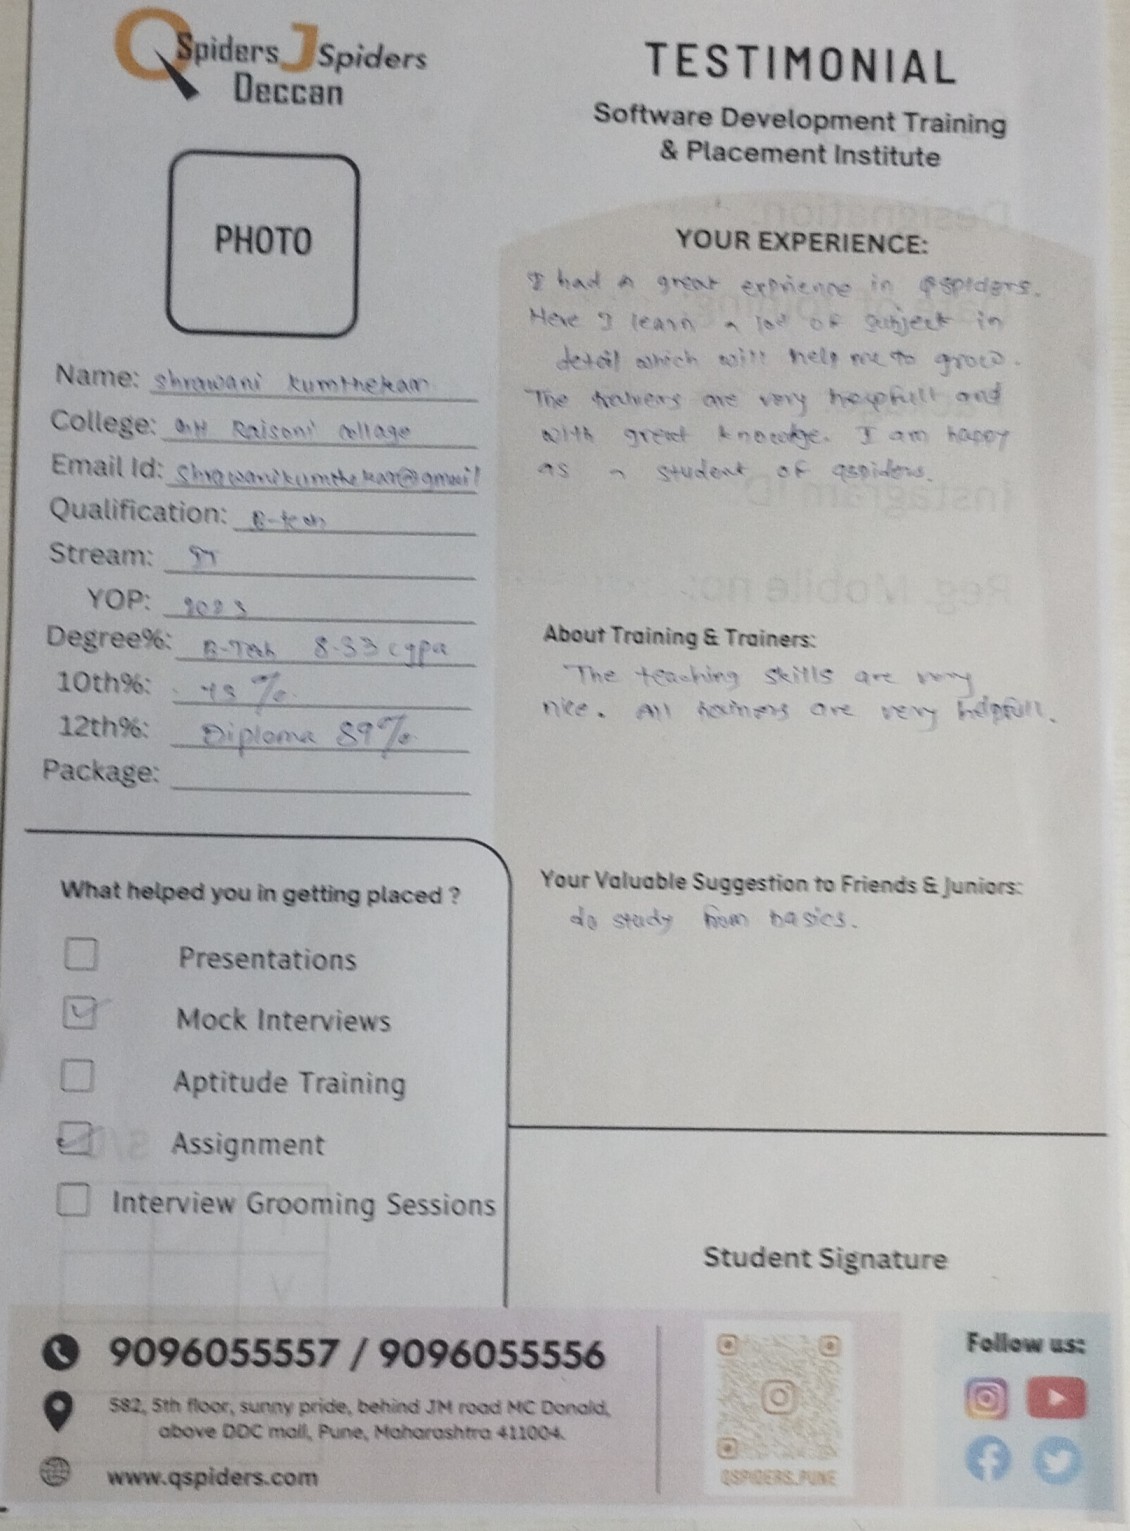 QSpiders JSpiders
Deccan
TESTIMONIAL
Software Development Training
& Placement Institute
PHOTO
Name: Shrawani Kumthekar
College: GH Raisoni collage
Email Id: Shrawanikumthekar@gmail
Qualification: B-tech
Stream: IT
YOP: 2023
Degree%: B-Tech 8.33 cgpa
10th%: %
12th%: Diploma 89%
Package:
YOUR EXPERIENCE:
I had a great exprience in qspiders.
Here I learn a lot of subject in
detail which will help me to grow.
The trainers are very helpfull and
with great knowledge. I am happy
as a student of qspiders.
About Training & Trainers:
The teaching skills are very
nice. All trainers are very helpfull.
Your Valuable Suggestion to Friends & Juniors:
do study from basics.
What helped you in getting placed ?
Presentations
Mock Interviews
Aptitude Training
Assignment
Interview Grooming Sessions
Student Signature
9096055557 / 9096055556
582, 5th floor, sunny pride, behind JM road MC Donald,
above DDC mall, Pune, Maharashtra 411004.
www.qspiders.com
QSPIDERS_PUNE
Follow us: